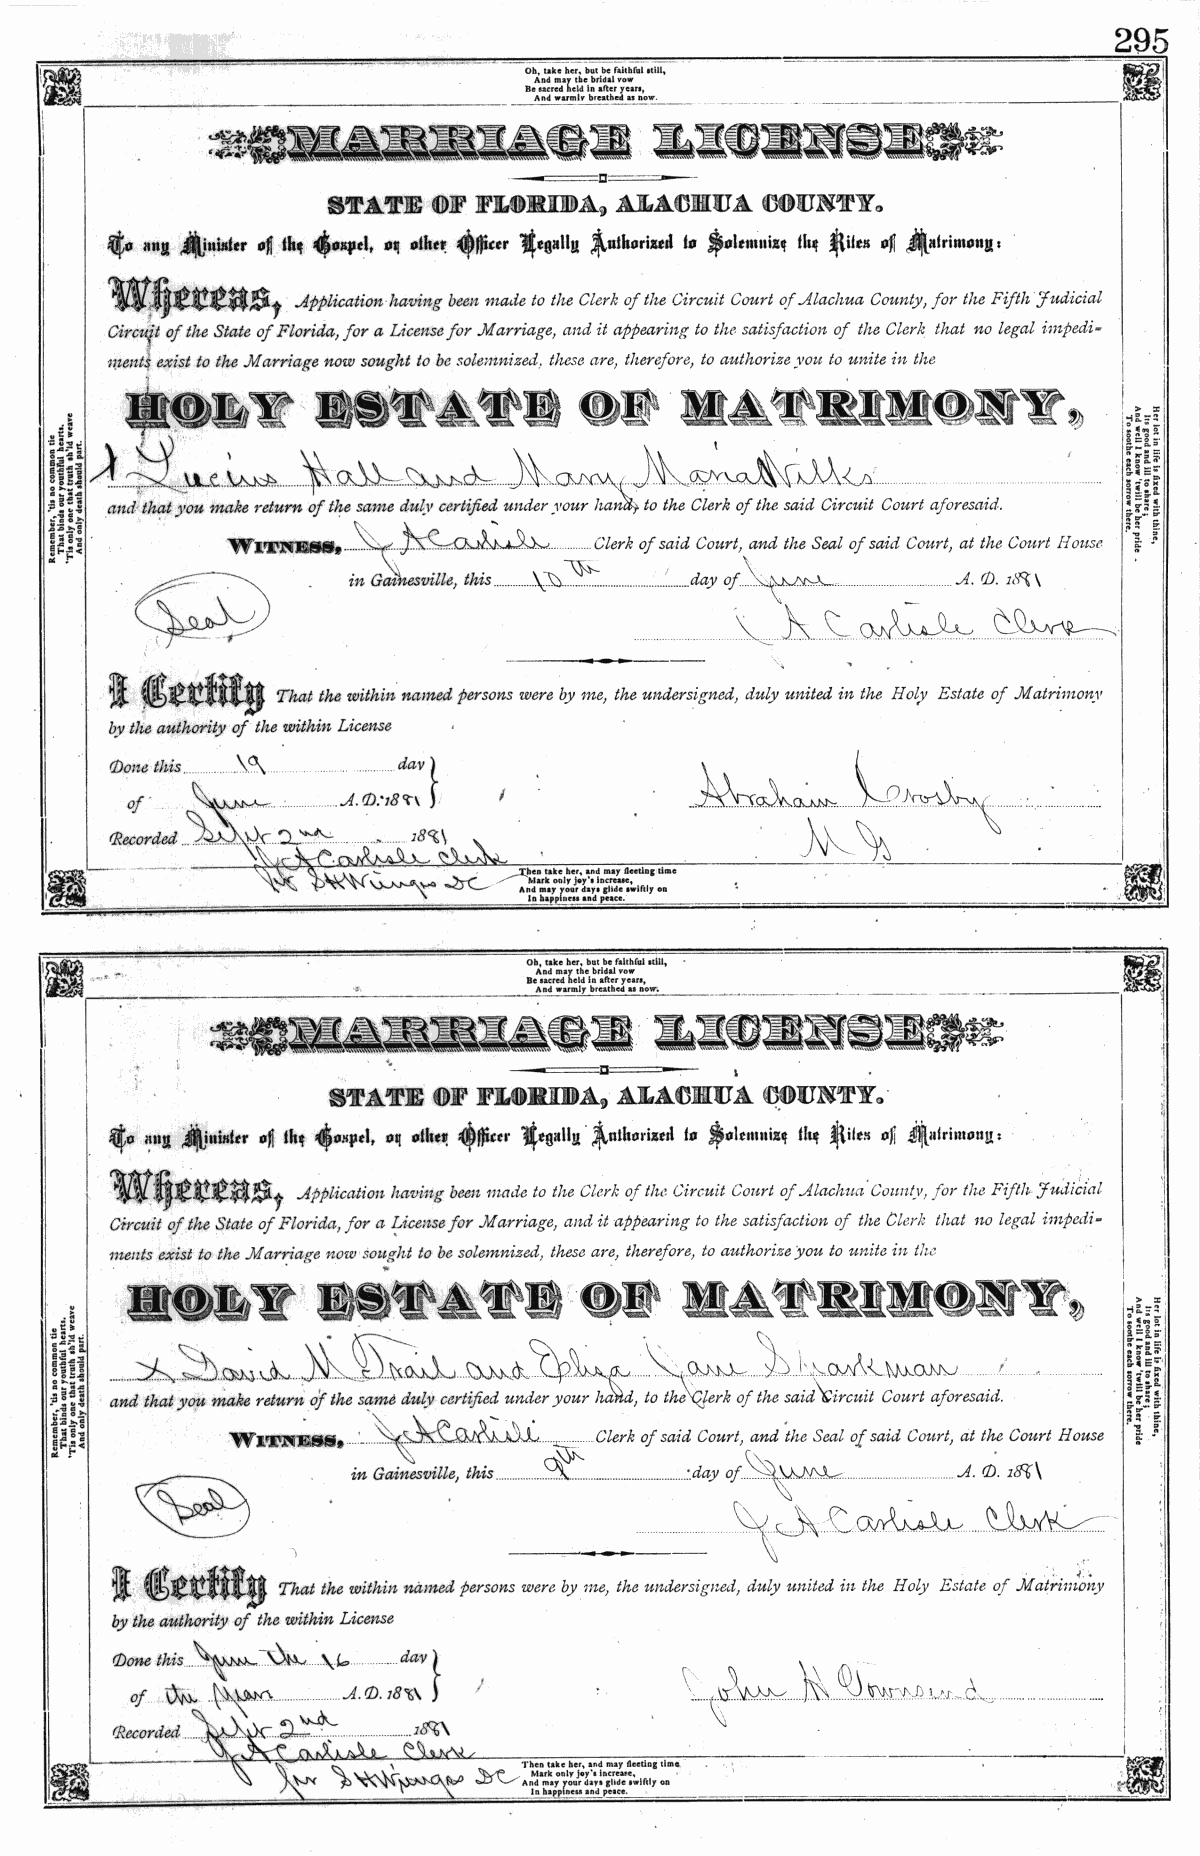 295
Oh, take her, but be faithful still,
And may the bridal vow
Be sacred held in after years,
And warmly breathed as now.
MARRIAGE LICENSE
STATE OF FLORIDA, ALACHUA COUNTY.
To any Minister of the Gospel, or other Officer Legally Authorized to Solemnize the Rites of Matrimony:
Whereas, Application having been made to the Clerk of the Circuit Court of Alachua County, for the Fifth Judicial
Circuit of the State of Florida, for a License for Marriage, and it appearing to the satisfaction of the Clerk that no legal impedi-
ments exist to the Marriage now sought to be solemnized, these are, therefore, to authorize you to unite in the
HOLY ESTATE OF MATRIMONY,
x Lucius Hall and Mary Maria Wilks
and that you make return of the same duly certified under your hand, to the Clerk of the said Circuit Court aforesaid.
WITNESS, J A Carlisle Clerk of said Court, and the Seal of said Court, at the Court House
in Gainesville, this 10th day of June A. D. 1881
Seal
J A Carlisle Clerk
I Certify That the within named persons were by me, the undersigned, duly united in the Holy Estate of Matrimony
by the authority of the within License
Done this 19 day
of June A. D. 1881
Abraham Crosby
M G
Recorded Sept 2nd 1881
J A Carlisle Clerk
per S H Wienges DC
Then take her, and may fleeting time
Mark only joy's increase,
And may your days glide swiftly on
In happiness and peace.
Remember, 'tis no common tie
That binds our youthful hearts,
'Tis only one that truth sh'ld weave
And only death should part.
Her lot in life is fixed with thine,
Its good and ill to share;
And well I know 'twill be her pride
To soothe each sorrow there.
Oh, take her, but be faithful still,
And may the bridal vow
Be sacred held in after years,
And warmly breathed as now.
MARRIAGE LICENSE
STATE OF FLORIDA, ALACHUA COUNTY.
To any Minister of the Gospel, or other Officer Legally Authorized to Solemnize the Rites of Matrimony:
Whereas, Application having been made to the Clerk of the Circuit Court of Alachua County, for the Fifth Judicial
Circuit of the State of Florida, for a License for Marriage, and it appearing to the satisfaction of the Clerk that no legal impedi-
ments exist to the Marriage now sought to be solemnized, these are, therefore, to authorize you to unite in the
HOLY ESTATE OF MATRIMONY,
x David M Trail and Eliza Jane Sparkman
and that you make return of the same duly certified under your hand, to the Clerk of the said Circuit Court aforesaid.
WITNESS, J A Carlisle Clerk of said Court, and the Seal of said Court, at the Court House
in Gainesville, this 9th day of June A. D. 1881
Seal
J A Carlisle Clerk
I Certify That the within named persons were by me, the undersigned, duly united in the Holy Estate of Matrimony
by the authority of the within License
Done this June the 16 day
of the year A. D. 1881
John H Townsend
Recorded Sept 2nd 1881
J A Carlisle Clerk
per S H Wienges DC
Then take her, and may fleeting time
Mark only joy's increase,
And may your days glide swiftly on
In happiness and peace.
Remember, 'tis no common tie
That binds our youthful hearts,
'Tis only one that truth sh'ld weave
And only death should part.
Her lot in life is fixed with thine,
Its good and ill to share;
And well I know 'twill be her pride
To soothe each sorrow there.